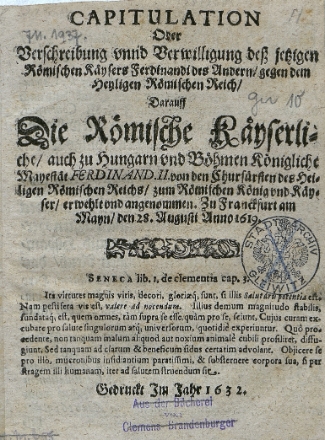 711.1937.
CAPITULATION
Oder
Verschreibung vnnd Verwilligung deß jetzigen
Römischen Käysers Ferdinandi des Andern/ gegen dem
Heyligen Römischen Reich/
Darauff
Die Römische Käyserli-
che/ auch zu Hungarn vnd Böhmen Königliche
Mayestät FERDINAND. II. von den Churfürsten des Hei-
ligen Römischen Reichs/ zum Römischen König vnd Käy-
ser/ erwehlt vnd angenommen. Zu Franckfurt am
Mayn/ den 28. Augusti Anno 1619.
SENECA lib. 1. de clementia cap. 3.
Ita virtutes magnis viris, decori, gloriæq; sunt, si illis salutaris potentia est.
Nam pestifera vis est, valere ad nocendum. Illius demum magnitudo stabilis,
fundataq; est, quem omnes, tàm supra se esse, quàm pro se, sciunt. Cujus curam ex-
cubare pro salute singulorum atq; universorum, quotidiè experiuntur. Quò pro-
cedente, non tanquam malum aliquod aut noxium animal è cubili prosilierit, diffu-
giunt. Sed tanquam ad clarum & beneficum sidus certatim advolant. Objicere se
pro illo, mucronibus insidiantium paratissimi, & substernere corpora sua, si per
stragem illi humanam, iter ad salutem struendum sit.
Gedruckt Im Jahr 1632.
Aus der Bücherei
Clemens Brandenburger
STADTARCHIV
GLEIWITZ